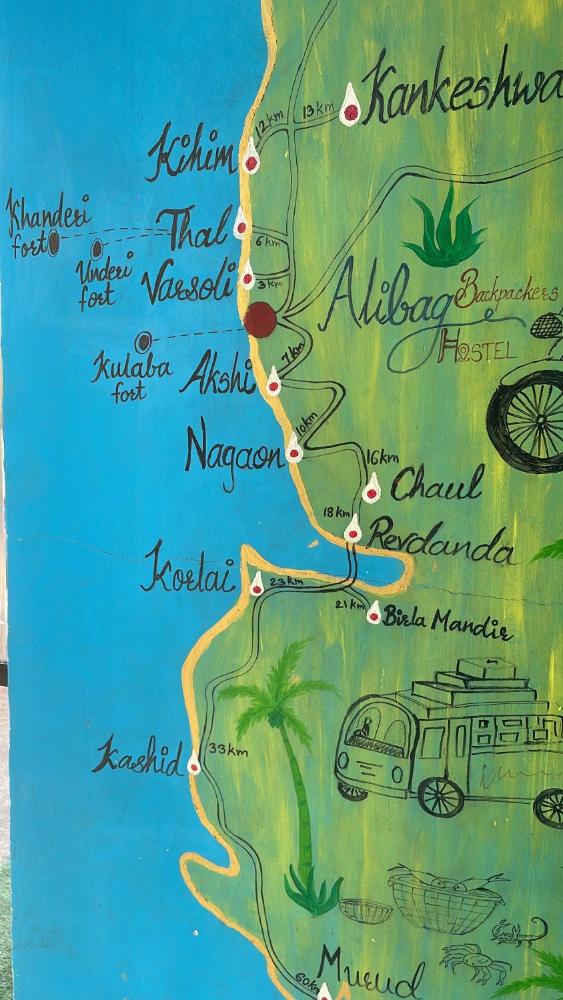 Kankeshwa
13km
12km
Kihim
Khanderi
fort
Thal
6km
Underi
fort
Varsoli
3km
Alibag
Backpackers
HOSTEL
Kulaba
fort
7km
Akshi
10km
Nagaon
16km
Chaul
18km
Revdanda
Korlai
23km
21km
Birla Mandir
Kashid
33km
Murud
60km